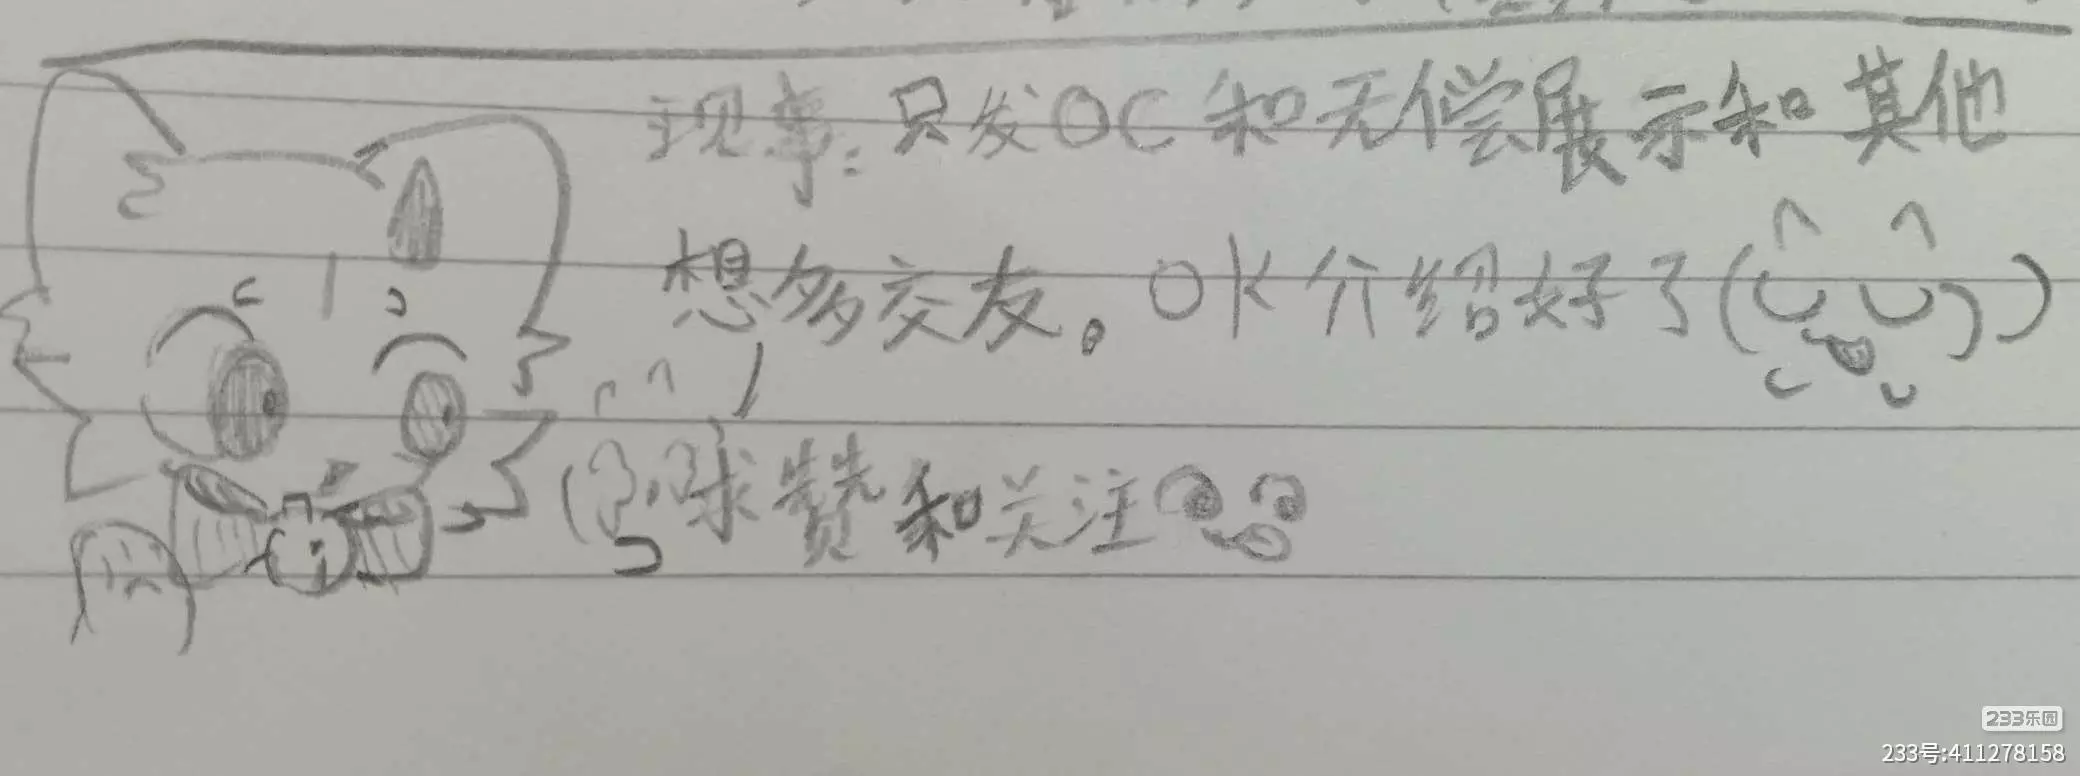 现事:只发OC和无偿展示和其他
想多交友。OK介绍好了
球赞和关注
233乐园
233号:411278158